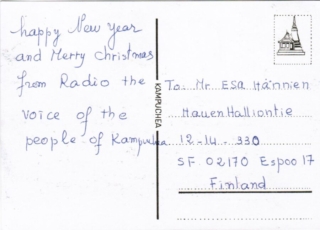 happy New Year
and Merry Christmas
from Radio the
voice of the
people of Kampuchea
KAMPUCHEA
To: Mr Esa Hännien
Hauen Halliontie
12-14 - 330
SF 02170 Espoo 17
Finland